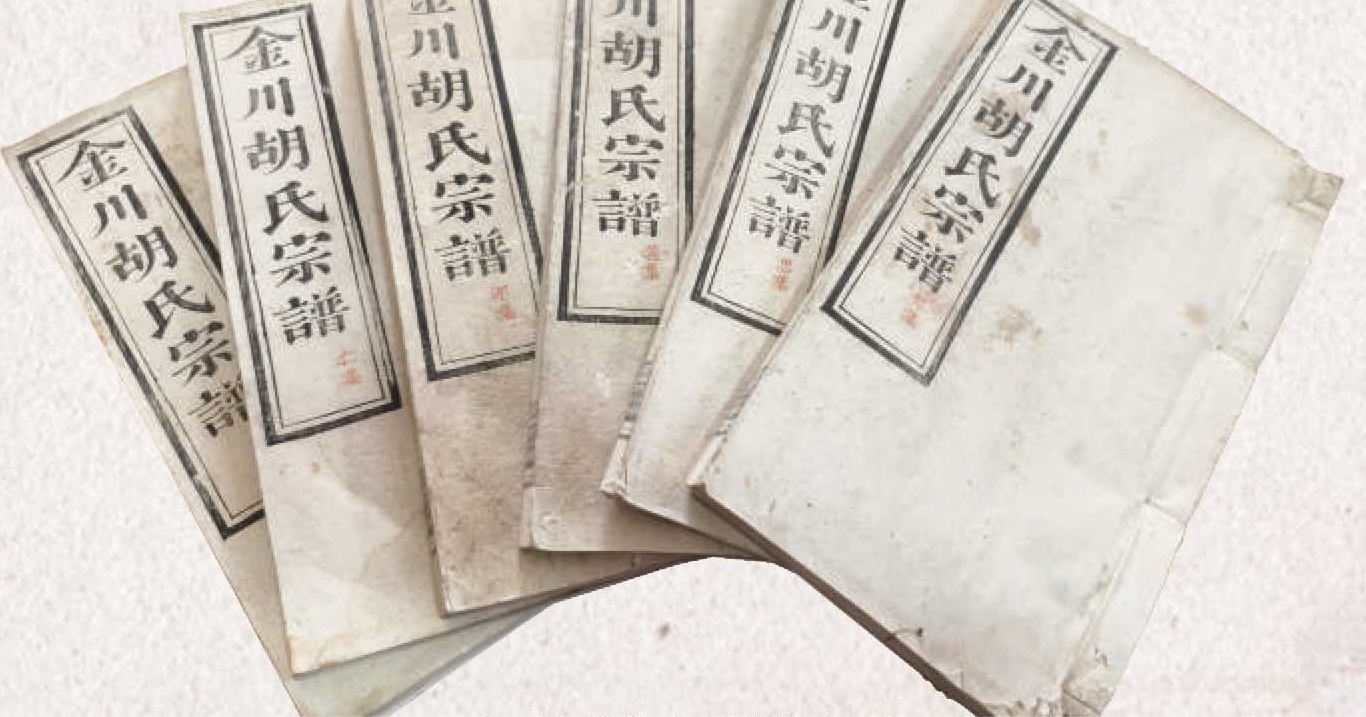 金川胡氏宗譜
金川胡氏宗譜
金川胡氏宗譜
川胡氏宗譜
金川胡氏宗譜
金川胡氏宗譜